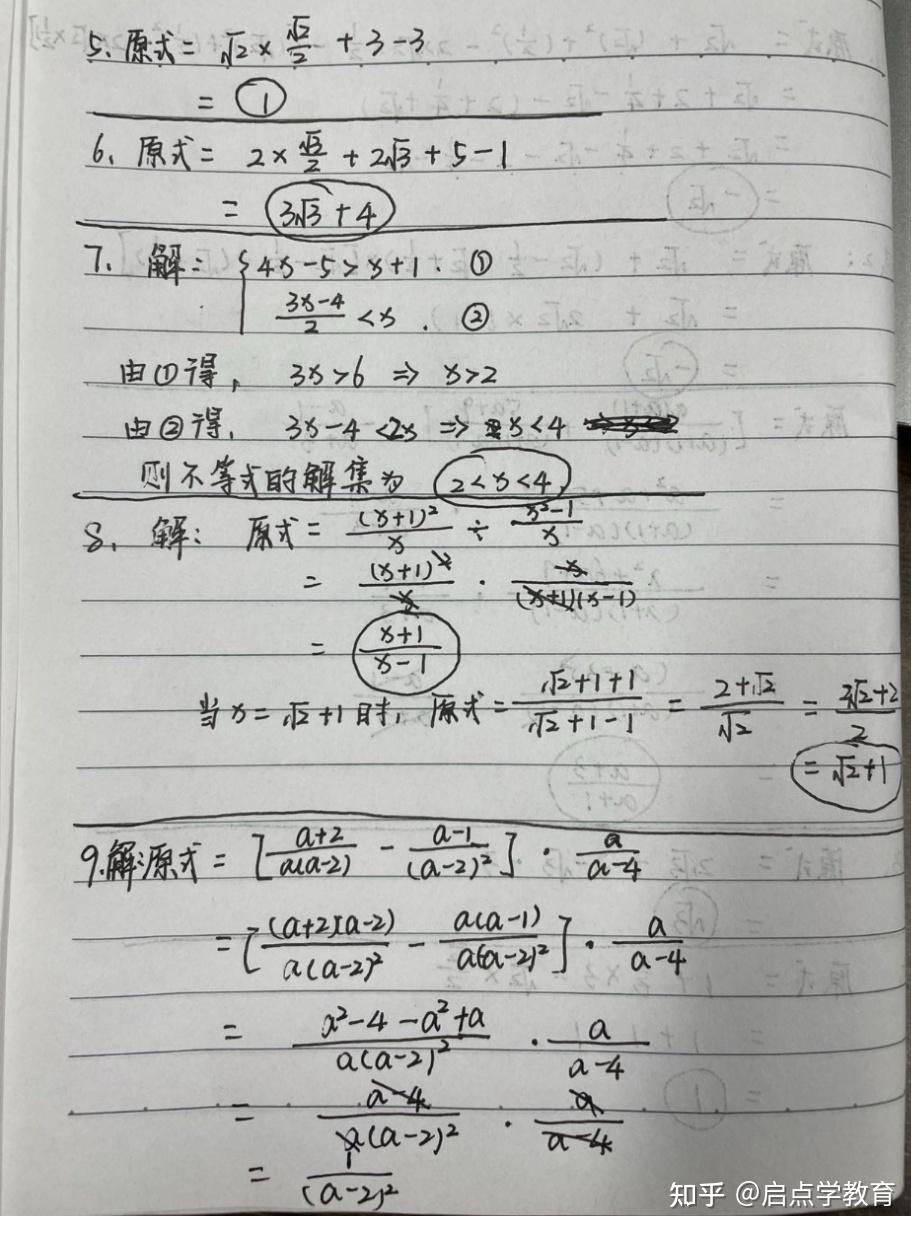 5、原式 = √2 × √2/2 + 3 - 3
= 1
6、原式 = 2 × √3/2 + 2√3 + 5 - 1
= 3√3 + 4
7、解: { 4x - 5 > x + 1 . ①
(3x-4)/2 < x . ②
由①得, 3x > 6 ⇒ x > 2
由②得, 3x - 4 < 2x ⇒ x < 4
则不等式的解集为 2 < x < 4
8、解: 原式 = (x+1)²/x ÷ (x²-1)/x
= (x+1)²/x · x/((x+1)(x-1))
= (x+1)/(x-1)
当 x = √2 + 1 时, 原式 = (√2+1+1)/(√2+1-1) = (2+√2)/√2 = (2√2+2)/2
= √2 + 1
9.解:原式 = [(a+2)/(a(a-2)) - (a-1)/(a-2)²] · a/(a-4)
= [(a+2)(a-2)/(a(a-2)²) - a(a-1)/(a(a-2)²)] · a/(a-4)
= (a²-4-a²+a)/(a(a-2)²) · a/(a-4)
= (a-4)/(a(a-2)²) · a/(a-4)
= 1/(a-2)²
知乎 @启点学教育